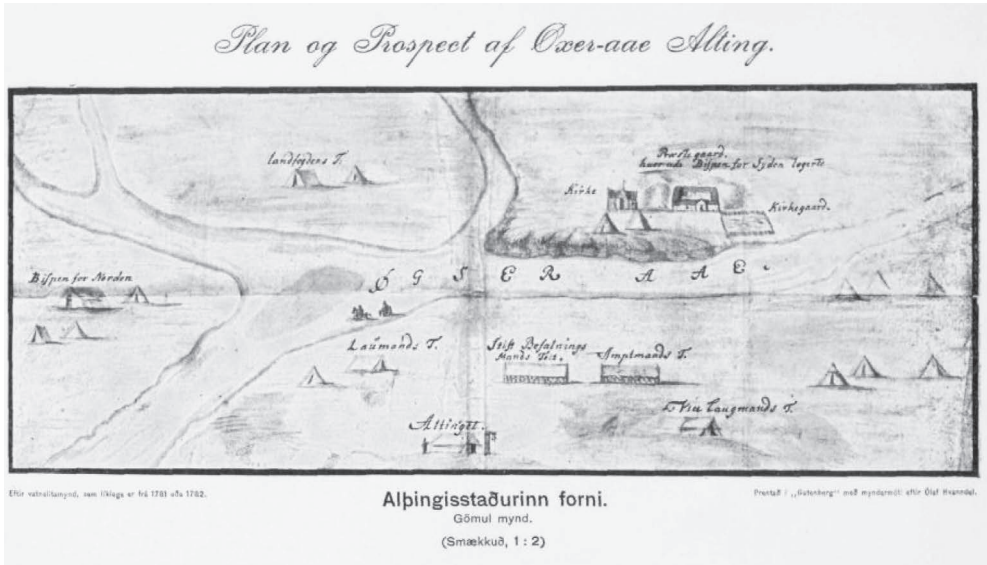 Plan og Prospect af Oxer-aae Alting.
landfogdens T.
Præstegaard.
huor udi Bispen for Syden logerte
Kirke
Kirkegaard.
Bispen for Norden
ØGSER AAE.
Laumands T.
Stift Befalnings
Mands Telt.
Amptmands T.
Vice Laugmands T.
Altinget.
Eftir vatnslitamynd, sem líklega er frá 1781 eða 1782.
Alþingisstaðurinn forni.
Prentað í „Gutenberg“ með myndamóti eftir Ólaf Hvanndal.
Gömul mynd.
(Smækkuð, 1 : 2)